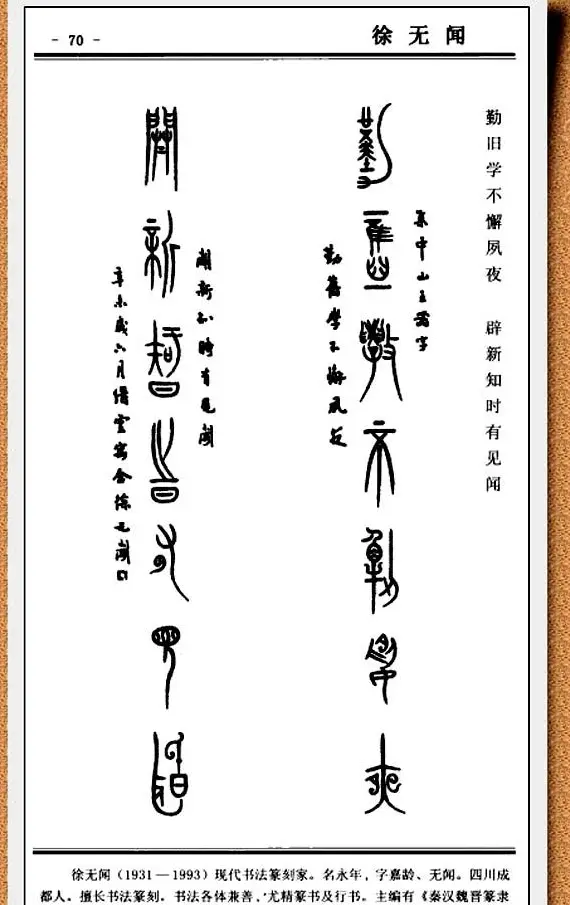 - 70 -
徐无闻
勤旧学不懈夙夜 辟新知时有见闻
集中山王器字
勤旧學不懈夙夜
闢新知時有見聞
辛未歲六月縉雲寓舍徐无聞
徐无闻（1931—1993）现代书法篆刻家。名永年，字嘉龄、无闻。四川成
都人。擅长书法篆刻。书法各体兼善，尤精篆书及行书。主编有《秦汉魏晋篆隶